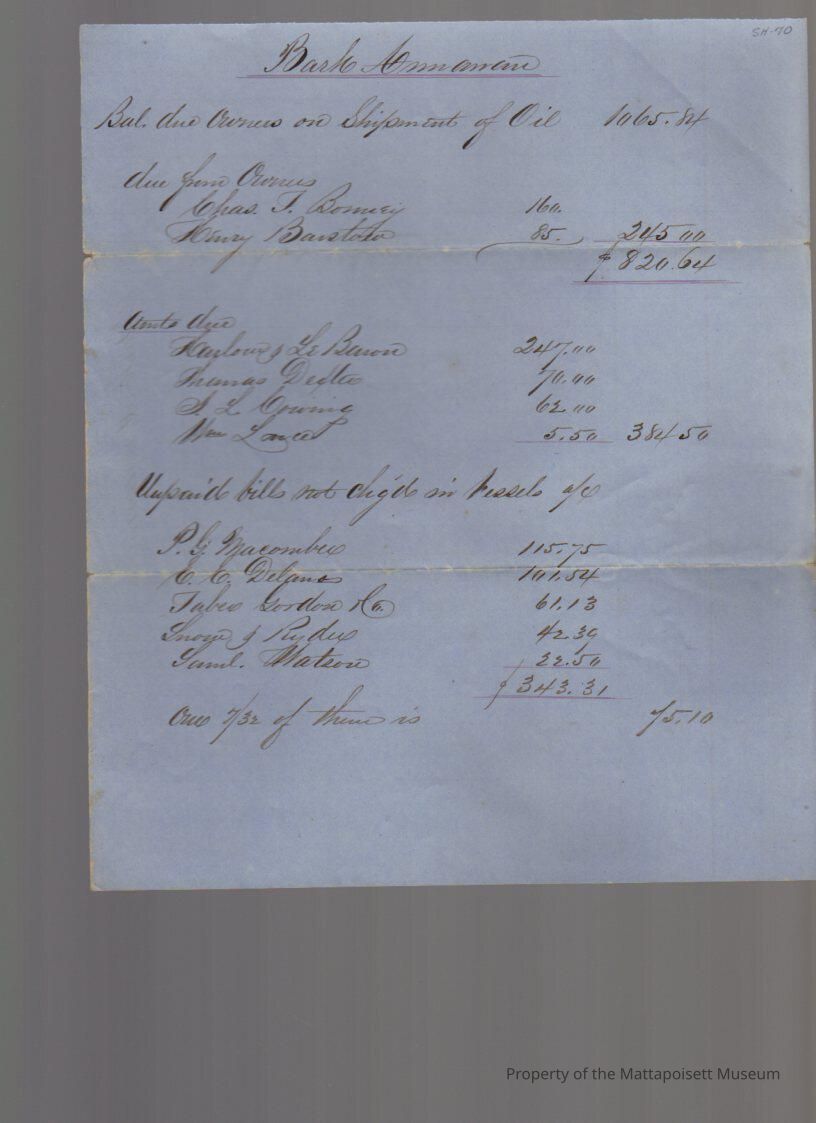 SH-70
Bark Annawan
Bal. due Owners on Shipment of Oil 1065.84
due from Owners
Chas. F. Bonney 160.
Henry Barstow 85. 245 00
$820.64
Amts due
Harlow & Le Baron 247.00
Thomas Dexter 70.00
S. L. Cowing 62 00
Wm 5.50 384 50
Unpaid bills not chg'd in Vessels a/c
P. G. Macomber 115.75
C. C. Delano 101.54
Taber Gordon & Co. 61.13
Snow & Ryder 42.39
Saml. Watson 22.50
$343.31
Our 7/32 of them is 75.10
Property of the Mattapoisett Museum